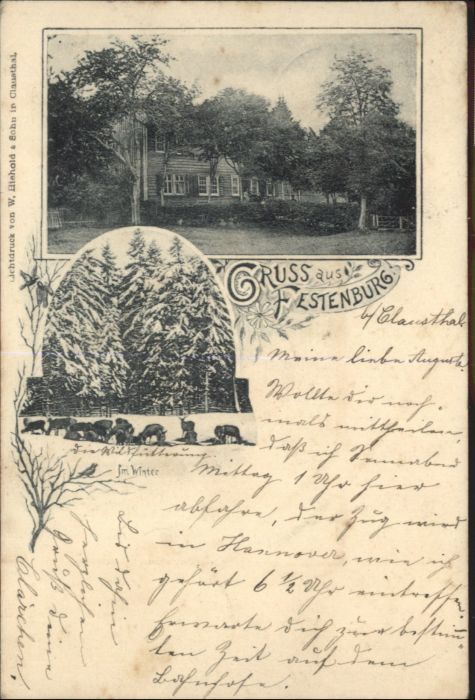 Lichtdruck von W. Hiehold & Sohn in Clausthal.
GRUSS aus
FESTENBURG!
b/Clausthal
Meine liebe Auguste!
Wollte dir noch-
mals mittheilen,
daß ich Sonnabend
Mittag 1 Uhr hier
abfahre, der Zug wird
in Hannover, wie ich
gehört 6 1/2 Uhr eintreffen.
Erwarte dich zur bestimm-
ten Zeit auf dem
Bahnhofe.
die Wildfütterung
Im Winter
Bis dahin
herzlichen
Gruß deine
Clärchen.